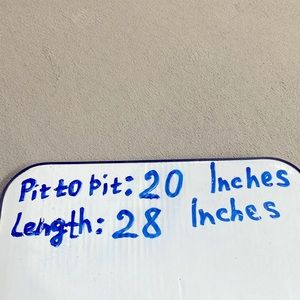 Pit to pit: 20 Inches
Length: 28 Inches